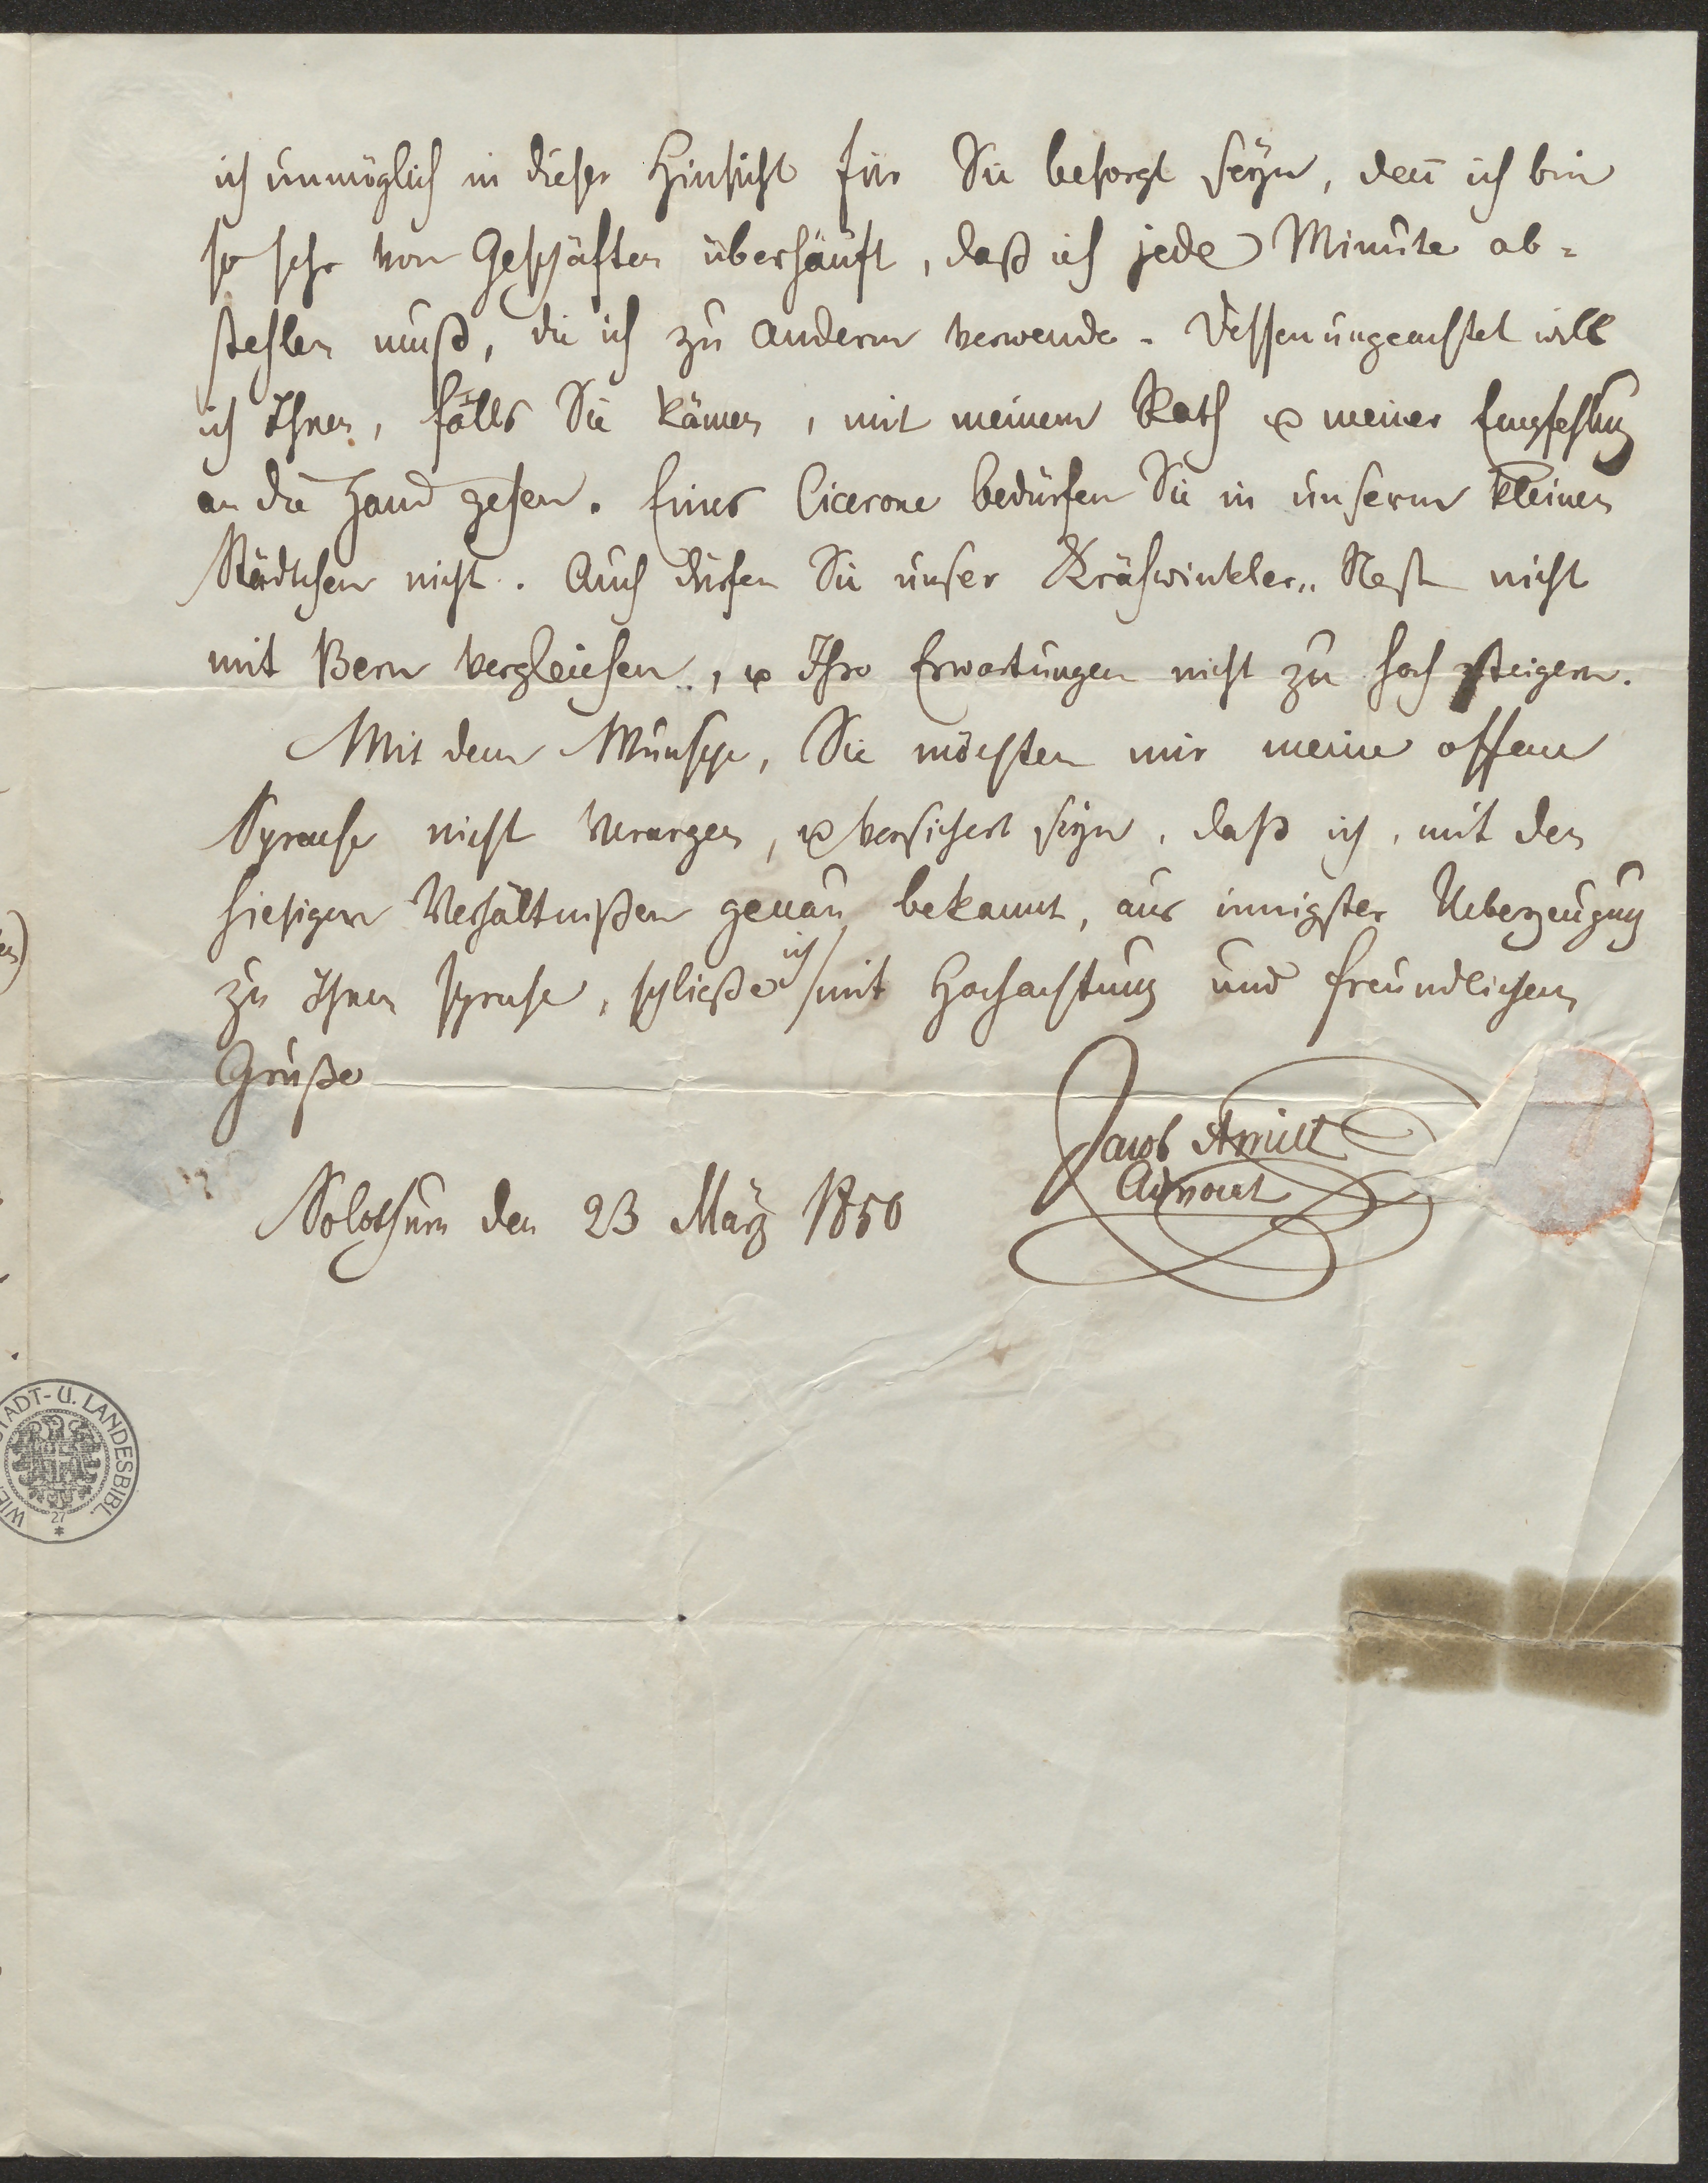 ich unmöglich in dieser Hinsicht für Sie besorgt seyn, deñ ich bin
so sehr von Geschäften überhäuft, daß ich jede Minute ab=
stehlen muß, die ich zu anderm verwende. Dessenungeachtet will
ich Ihnen, falls Sie kämen, mit meinem Rath u meiner Empfehlung
an die Hand gehen. Eines Cicerone bedürfen Sie in unserm kleinen
Städtchen nicht. Auch dürfen Sie unser Krähwinkler„ Nest nicht
mit Bern vergleichen, u Ihre Erwartungen nicht zu hoch steigern.
Mit dem Wunsche, Sie möchten mir meine offene
Sprache nicht verargen, u versichert seyn, daß ich, mit den
hiesigen Verhältnißen genau bekannt, aus innigster Ueberzeugung
zu Ihnen spreche, schließe ich mit Hochachtung und freundlichem
Gruße
Jacob Amiet
Advocat
Solothurn den 23 März 1850
STADT- U. LANDESBIBL.
WIE
27